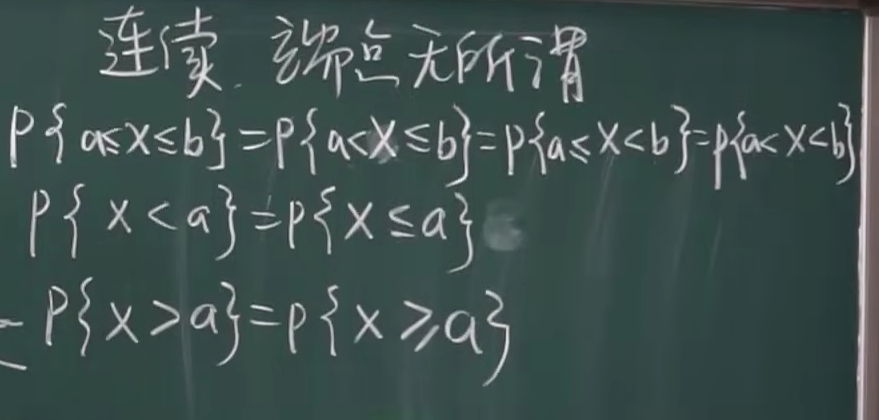 连续.端点无所谓
P{a≤X≤b}=P{a<X≤b}=P{a≤X<b}=P{a<X<b}
P{X<a}=P{X≤a}
P{X>a}=P{X≥a}